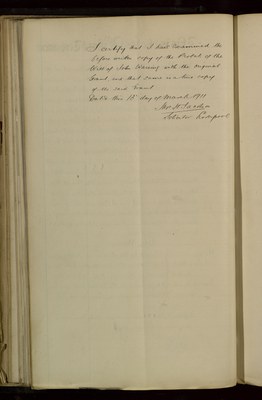 I certify that I have examined the
before written copy of the Probate of the
Will of John with the original
Grant and that same is a true copy
of the said Grant
Dated this day of March 1911
Solicitor Liverpool